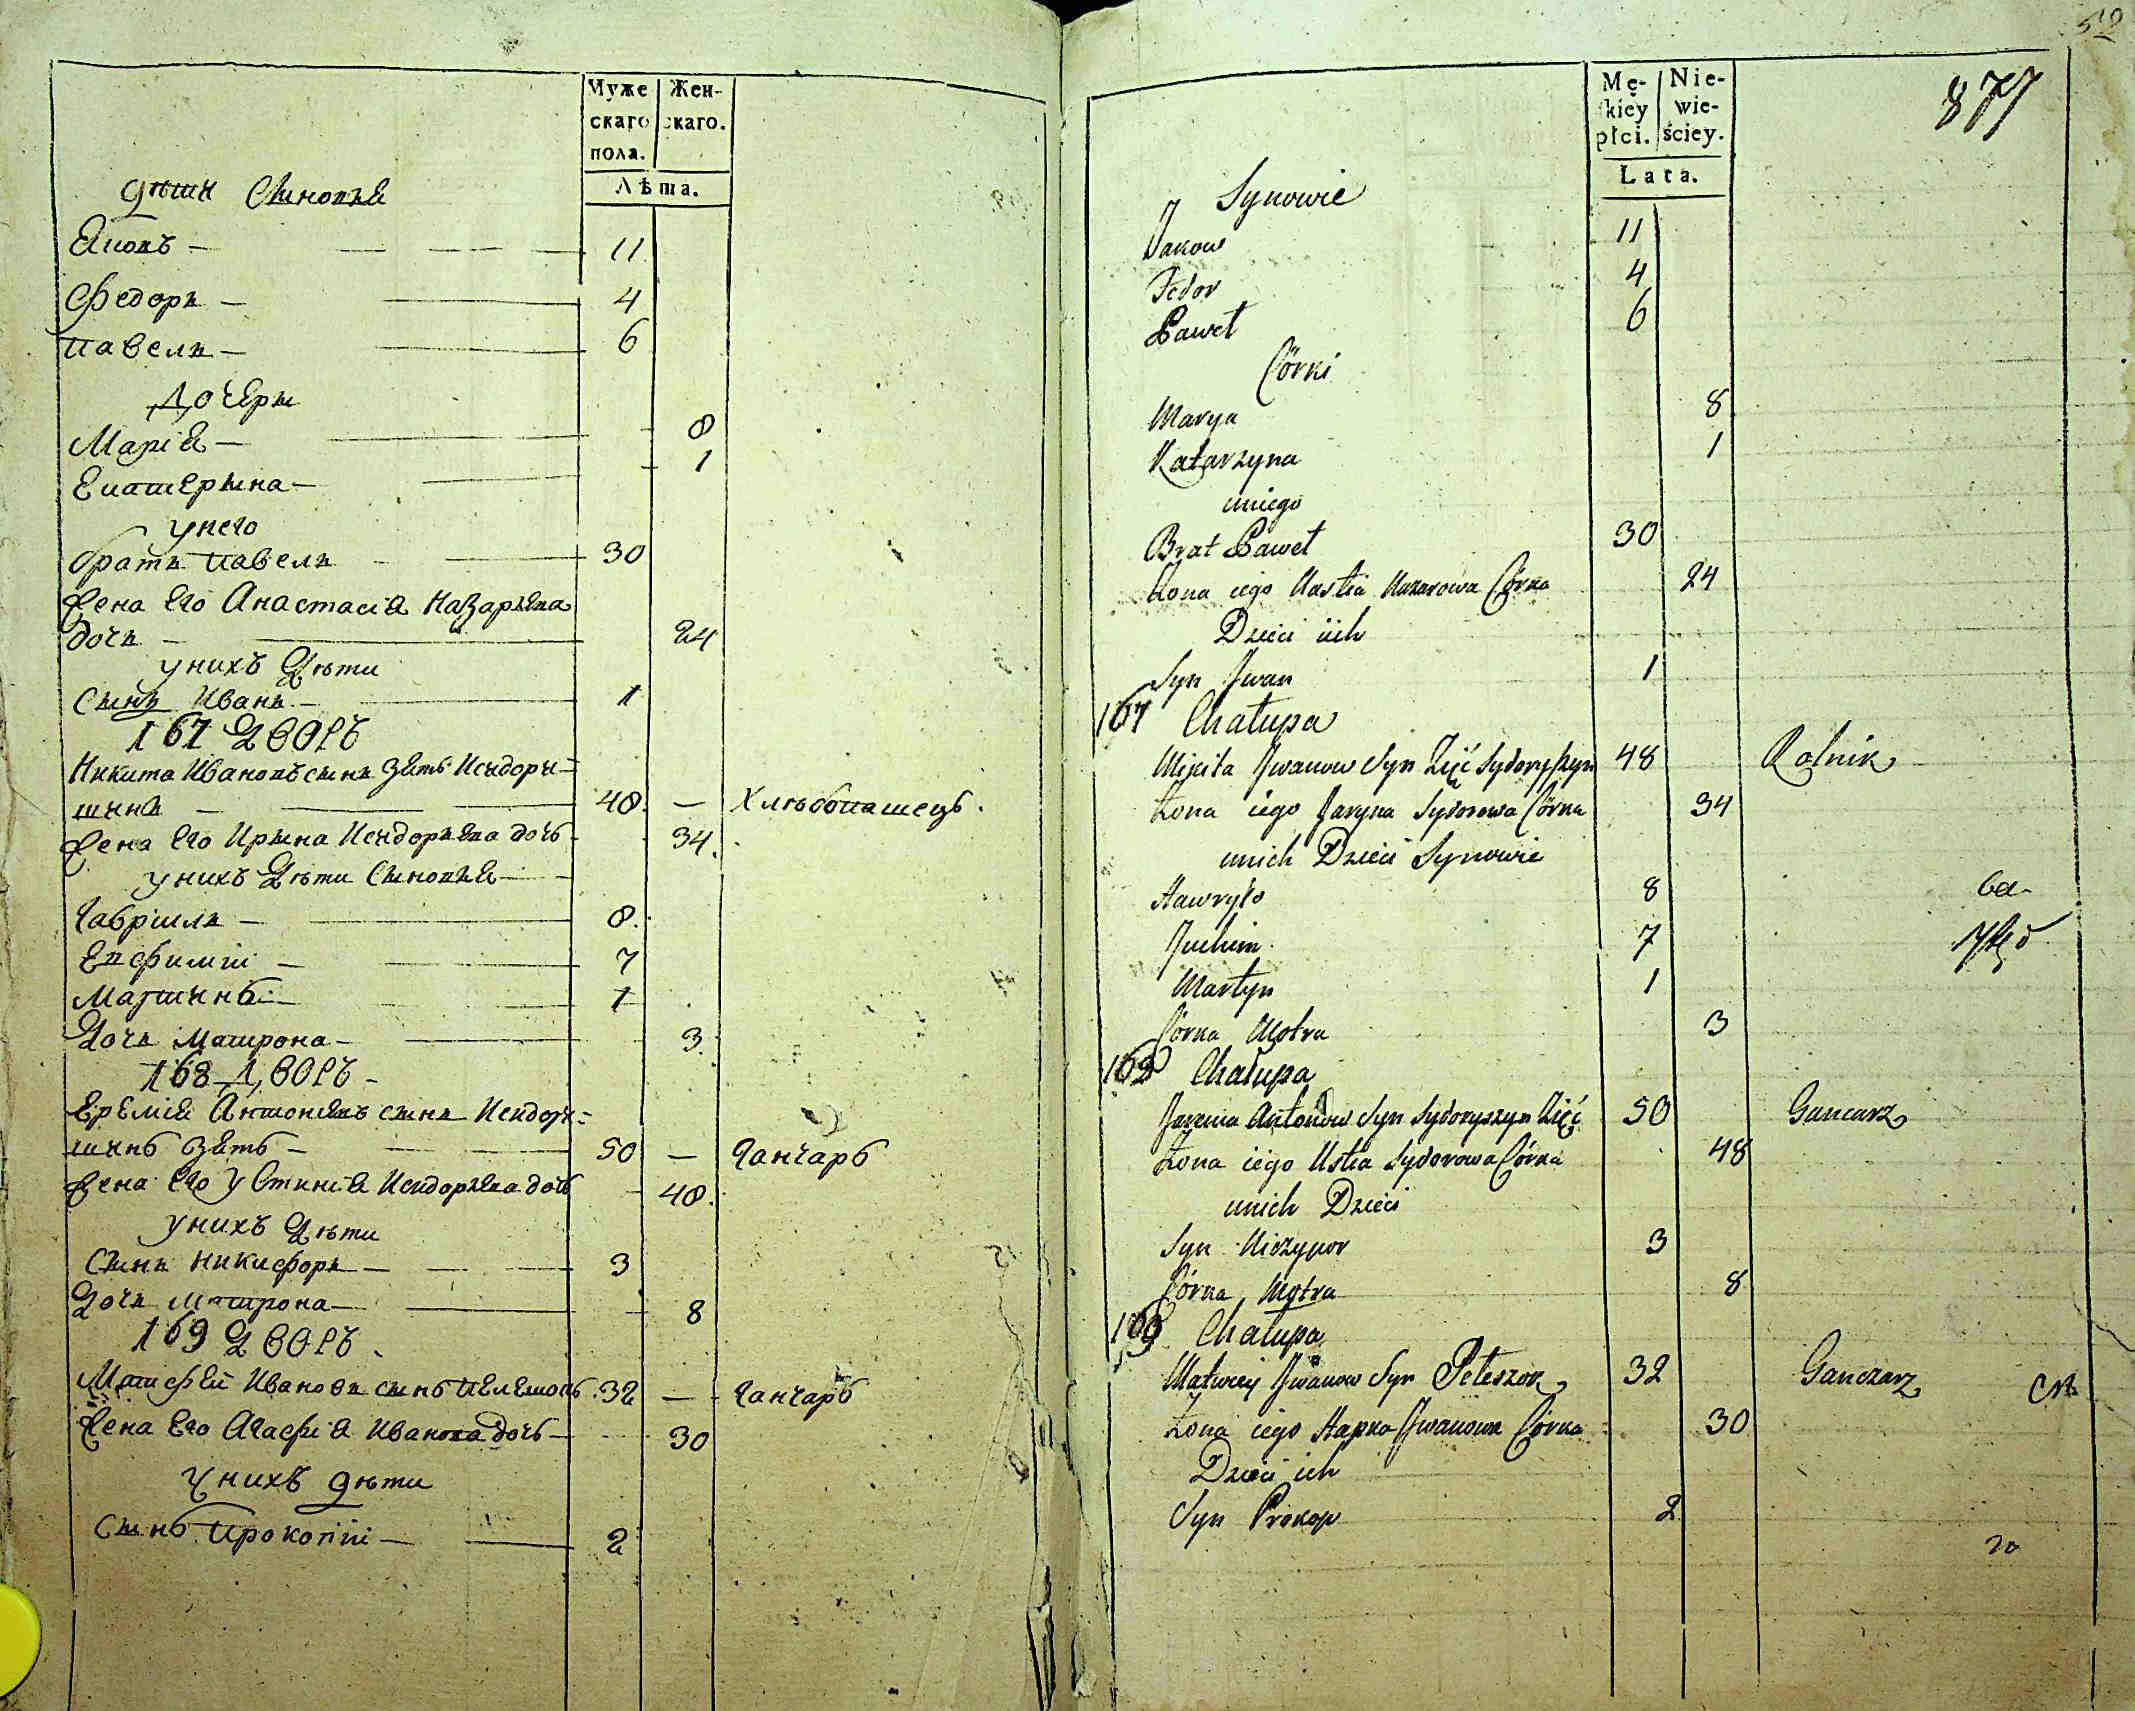 Муже
скаго
пола.
Жен-
скаго.
Лѣта.
дѣти Сыновья
Яковъ — 11
Федоръ — 4
Павелъ — 6
Дочери
Марія — 8
Екатерына — 1
у него
братъ Павелъ — 30
Жена его Анастасія Назарьева
дочь — 24
у нихъ Дѣти
Сынъ Иванъ — 1
167 Дворъ
Никита Ивановъ сынъ зять Исидори-
шинъ — 48. — Хлѣбопашецъ.
Жена его Ирына Исидорьева дочь — 34.
у нихъ Дѣти Сыновья —
Гавріилъ — 8.
Евфимій — 7
Мартинъ — 1
Дочь Матрона — 3.
168 Дворъ —
Еремія Антоновъ сынъ Исидори-
шинъ зять — 50 — Ганчаръ
Жена его Устинія Исидорьева дочь — 48.
у нихъ Дѣти
Сынъ Никифоръ — 3
Дочь Матрона — 8
169 Дворъ
Матфей Ивановъ сынъ Пелешокъ 32 — Ганчаръ
Жена его Агафія Иванова дочь — 30
У нихъ дѣти
Сынъ Прокопій — 2
Mę-
skiey
płci.
Nie-
wie-
ściey.
Lata.
877
Synowie
Jakow 11
Fedor 4
Paweł 6
Córki
Marya 8
Katarzyna 1
uniego
Brat Paweł 30
Żona iego Nastia Nazarowa Córka 24
Dzieci iich
Syn Jwan 1
167 Chałupa
Mikita Jwanow Syn Zięć Sydoryszyn 48 Rolnik
Żona iego Jaryna Sydorowa Córka 34
unich Dzieci Synowie
Hawryło 8
Juchim 7
Martyn 1
Córka Motra 3
168 Chałupa
Jarema Antonow Syn Sydoryszyn Zięć 50 Gancarz
Żona iego Ustia Sydorowa Córka 48
unich Dzieci
Syn Niczypor 3
Córka Motra 8
169 Chałupa
Matwiey Jwanow Syn Peleszok 32 Ganczarz
Żona iego Hapka Jwanowa Córka 30
Dzieci ich
Syn Prokop 2